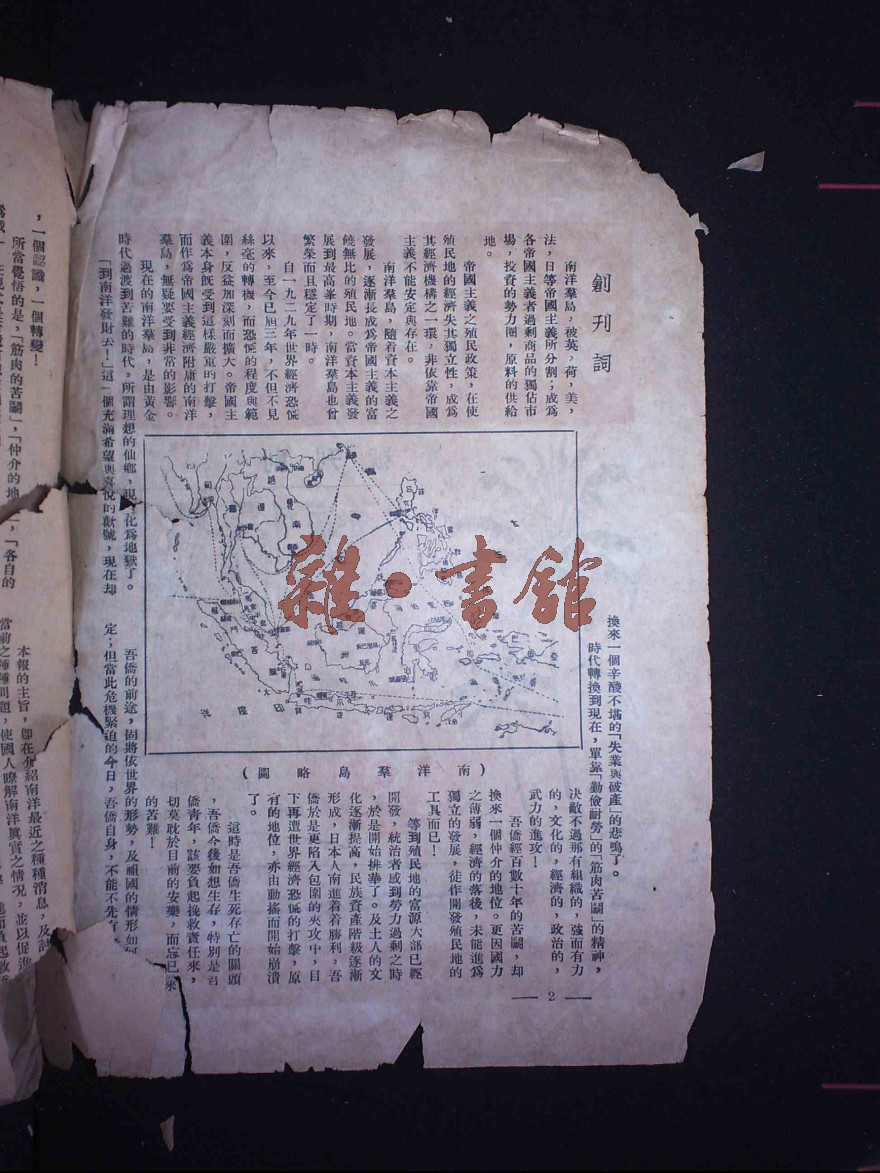 創刊詞
南洋羣島，被英，荷，美，
法，日等帝國主義所分割；成爲
各帝國主義者過剩商品的獨佔市
場，投資的勢力圈，原料的供給
地。
帝國主義之殖民政策，在使
殖民地的經濟失其獨立性，成爲
其經濟機構之一環，非依靠帝國
主義不能安定與存在。
南洋羣島，隨着資本主義之
發展，逐漸長成爲帝國主義的富
饒無比的殖民地。當資本主義發
展到最高峯時期，南洋羣島也曾
繁榮而且穩定了一時。
自一九二九年世界經濟恐慌
以來，至今已屆三年，不但不見
絲毫的轉機，而恐慌的程度與範
圍，反益加深刻而擴大。帝國主
義本身旣受到這樣嚴重的打擊，
而作爲帝國主義經濟附庸的南洋
羣島，無疑要受到非常的影響。
現在的南洋羣島，是由黃金
時代過渡到苦難的時代，所謂理想的仙鄉，現化爲地獄了。
「到南洋發財去！」這一個充滿希望與喜悅的歡號，現在却
換來一個辛酸不堪的「失業與破產」的悲鳴了。
時代轉換到現在，單靠「勤儉耐勞」的「筋肉苦鬭」的精神，
決敵不過那有組織的，強而有力
的，文化的，經濟的，政治的，
武力的進攻！
吾僑經百數十年的苦鬭，却
換來一個仲介的地位。更因國力
之薄弱，經濟的落後，未能進爲
獨立的發展，徒作開發殖民地的
工具而已！
等到殖民地的富源大部已經
開發，統治者感到勞力過剩之時
，於是開始排華了。及土人的文
化逐漸提高，民族資產階級逐漸
形成，日本人南進着着勝利，吾
僑於是更陷入包圍的夾攻中，目
下再遭世界經濟恐慌的打擊，原
有的地位，亦由動搖而開始崩潰
了。
這時是吾僑生死存亡的關頭
，吾僑今後如想生存，特別是吾
僑靑年，該要負起挽救責任來，
切莫耽於目前的安樂，而忘已來
的苦難！
吾僑的前途，固將依世界的形勢，及祖國的情形如何
定；但當此危機緊迫的今日，吾僑自身，不能不先有
（南洋羣島略圖）
印度洋
— 2 —
，一個認識，一個轉變！
所當覺悟的是，「筋肉的苦鬭」，「仲介的地」，「各自的
本報的主旨，卽在介紹南洋最近之種種消息，及討
當前之種種問題，使國人瞭解南洋眞實之情況，並以促進